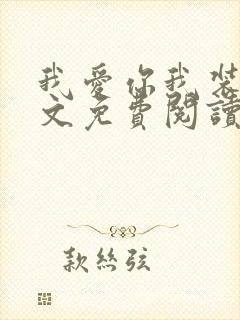 我愛你我裝
文免費閱讀
款絲弦